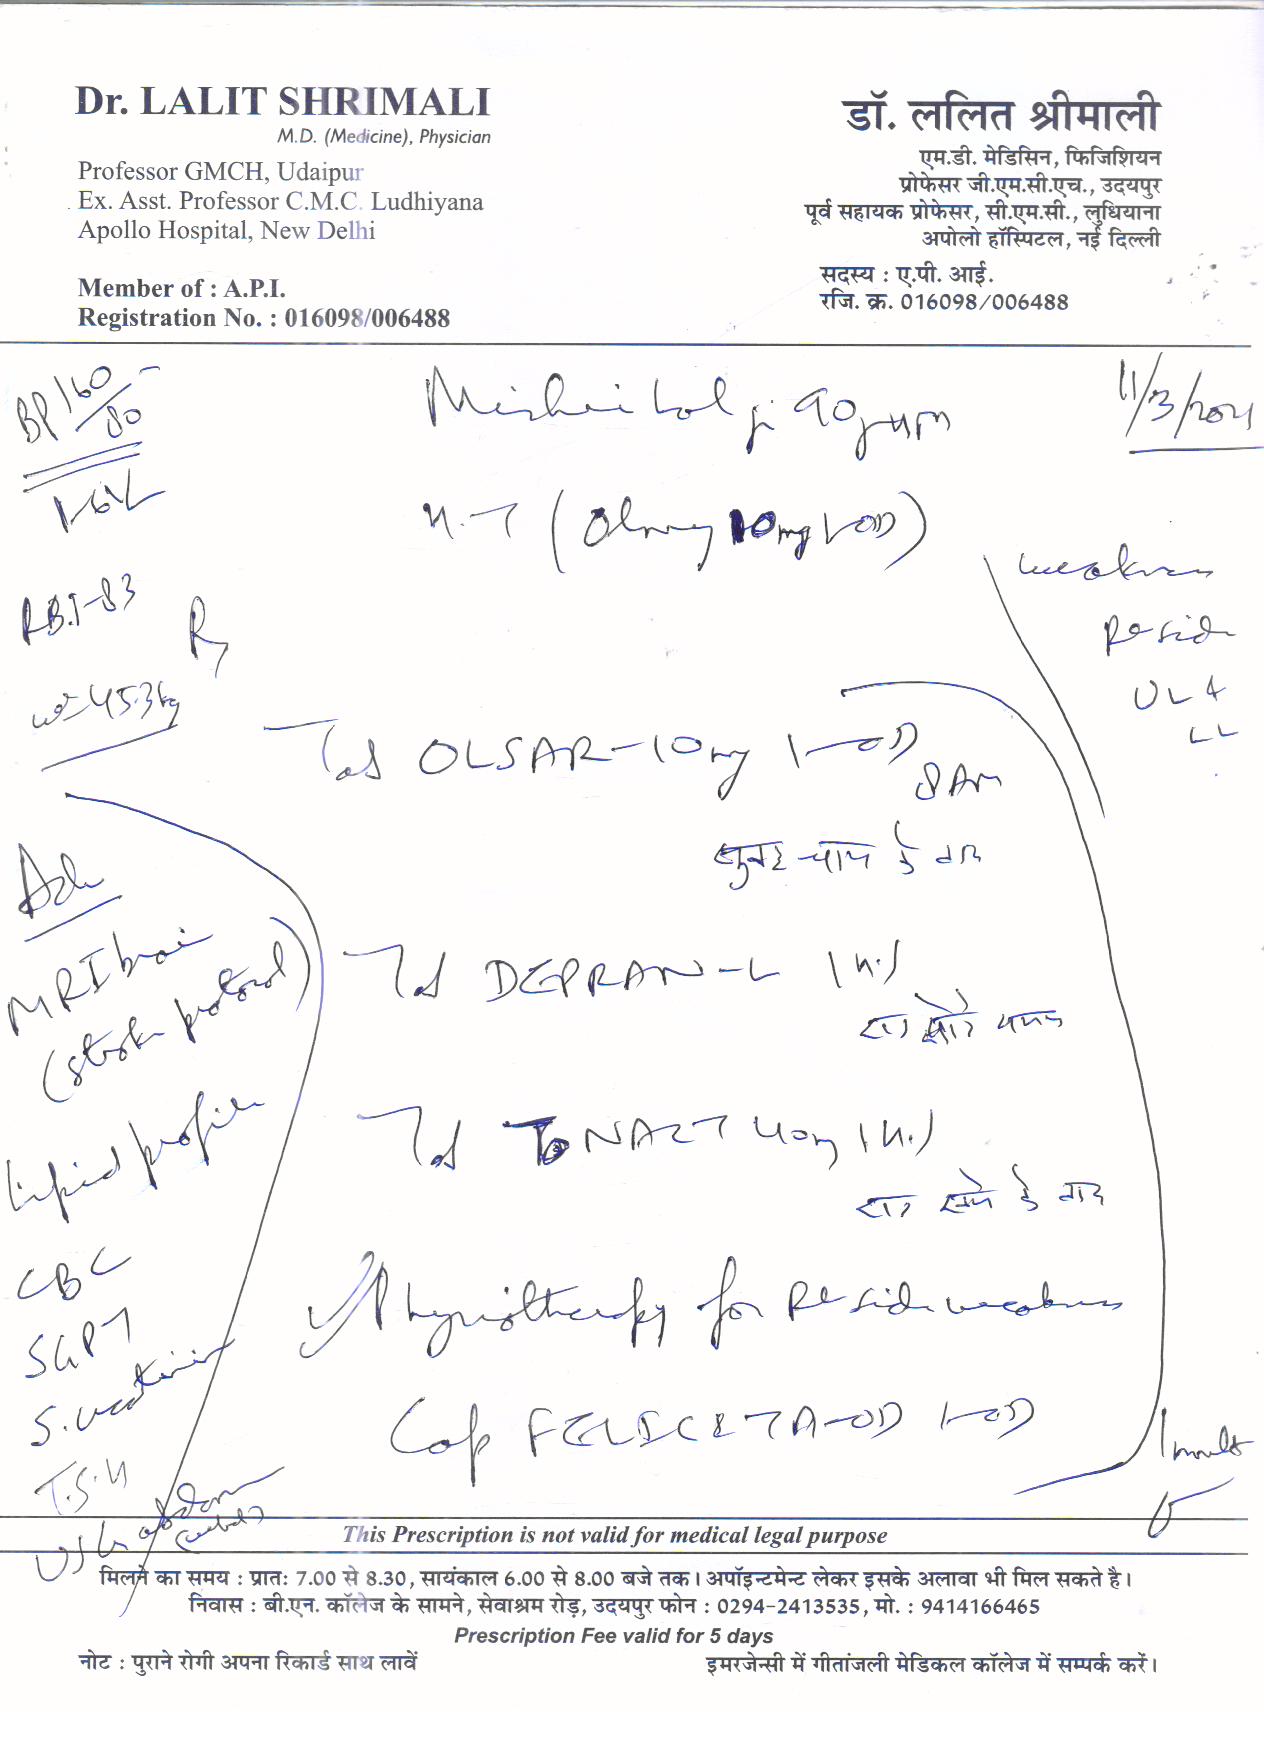 Dr. LALIT SHRIMALI
M.D. (Medicine), Physician
Professor GMCH, Udaipur
Ex. Asst. Professor C.M.C. Ludhiyana
Apollo Hospital, New Delhi
Member of : A.P.I.
Registration No. : 016098/006488
डॉ. ललित श्रीमाली
एम.डी. मेडिसिन, फिजिशियन
प्रोफेसर जी.एम.सी.एच., उदयपुर
पूर्व सहायक प्रोफेसर, सी.एम.सी., लुधियाना
अपोलो हॉस्पिटल, नई दिल्ली
सदस्य : ए.पी. आई.
रजि. क्र. 016098/006488
BP 160/80
11/3/2021
10mg 1-OD)
weakness
Rt side
UL &
LL
R.B.S-83
Rx
wt-45.3kg
Tab OLSAR-10mg 1-OD
8AM
सुबह चाय के बाद
Adv
MRI brain
(stroke protocol)
Tab DEPRAN-L 1 H.S
रात सोते समय
Lipid profile
Tab TONACT 40mg 1 H.S
रात खाने के बाद
CBC
SGPT
S. creatinine
T.S.H
USG abdomen
Physiotherapy for Rt side weakness
Cap FELICITA-OD 1-OD
1 month
This Prescription is not valid for medical legal purpose
मिलने का समय : प्रातः 7.00 से 8.30, सायंकाल 6.00 से 8.00 बजे तक। अपॉइन्टमेन्ट लेकर इसके अलावा भी मिल सकते है।
निवास : बी.एन. कॉलेज के सामने, सेवाश्रम रोड़, उदयपुर फोन : 0294-2413535, मो. : 9414166465
Prescription Fee valid for 5 days
नोट : पुराने रोगी अपना रिकार्ड साथ लावें
इमरजेन्सी में गीतांजली मेडिकल कॉलेज में सम्पर्क करें।